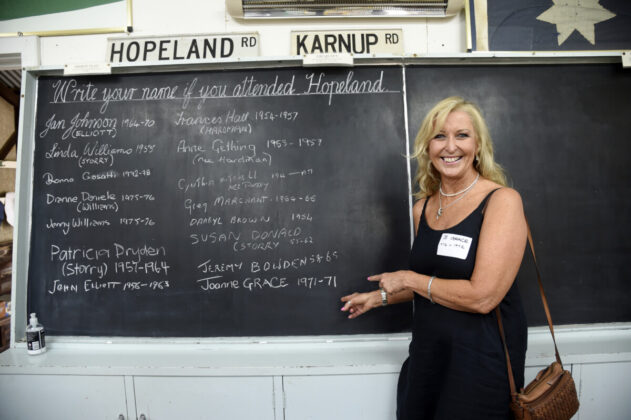 HOPELAND RD
KARNUP RD
Write your name if you attended Hopeland.
Jan Johnson 1964-70
(ELLIOTT)
Linda Williams 1955
(STORRY)
Donna 1992-98
Danne Daniele 1975-76
(Williams)
Jenny Williams 1975-76
Patricia Dryden
(Storry) 1957-1964
JOHN ELLIOTT 1958-1963
Frances Hall 1954-1957
(HARDMAN)
Anne Gething 1953-1957
(nee Hardiman)
Cynthia
NEE
Greg MARCHANT 1964-65
DARRYL BROWN 1954
SUSAN DONALD
(STORRY) 57-62
JEREMY BOWDEN
Joanne GRACE 1971-71